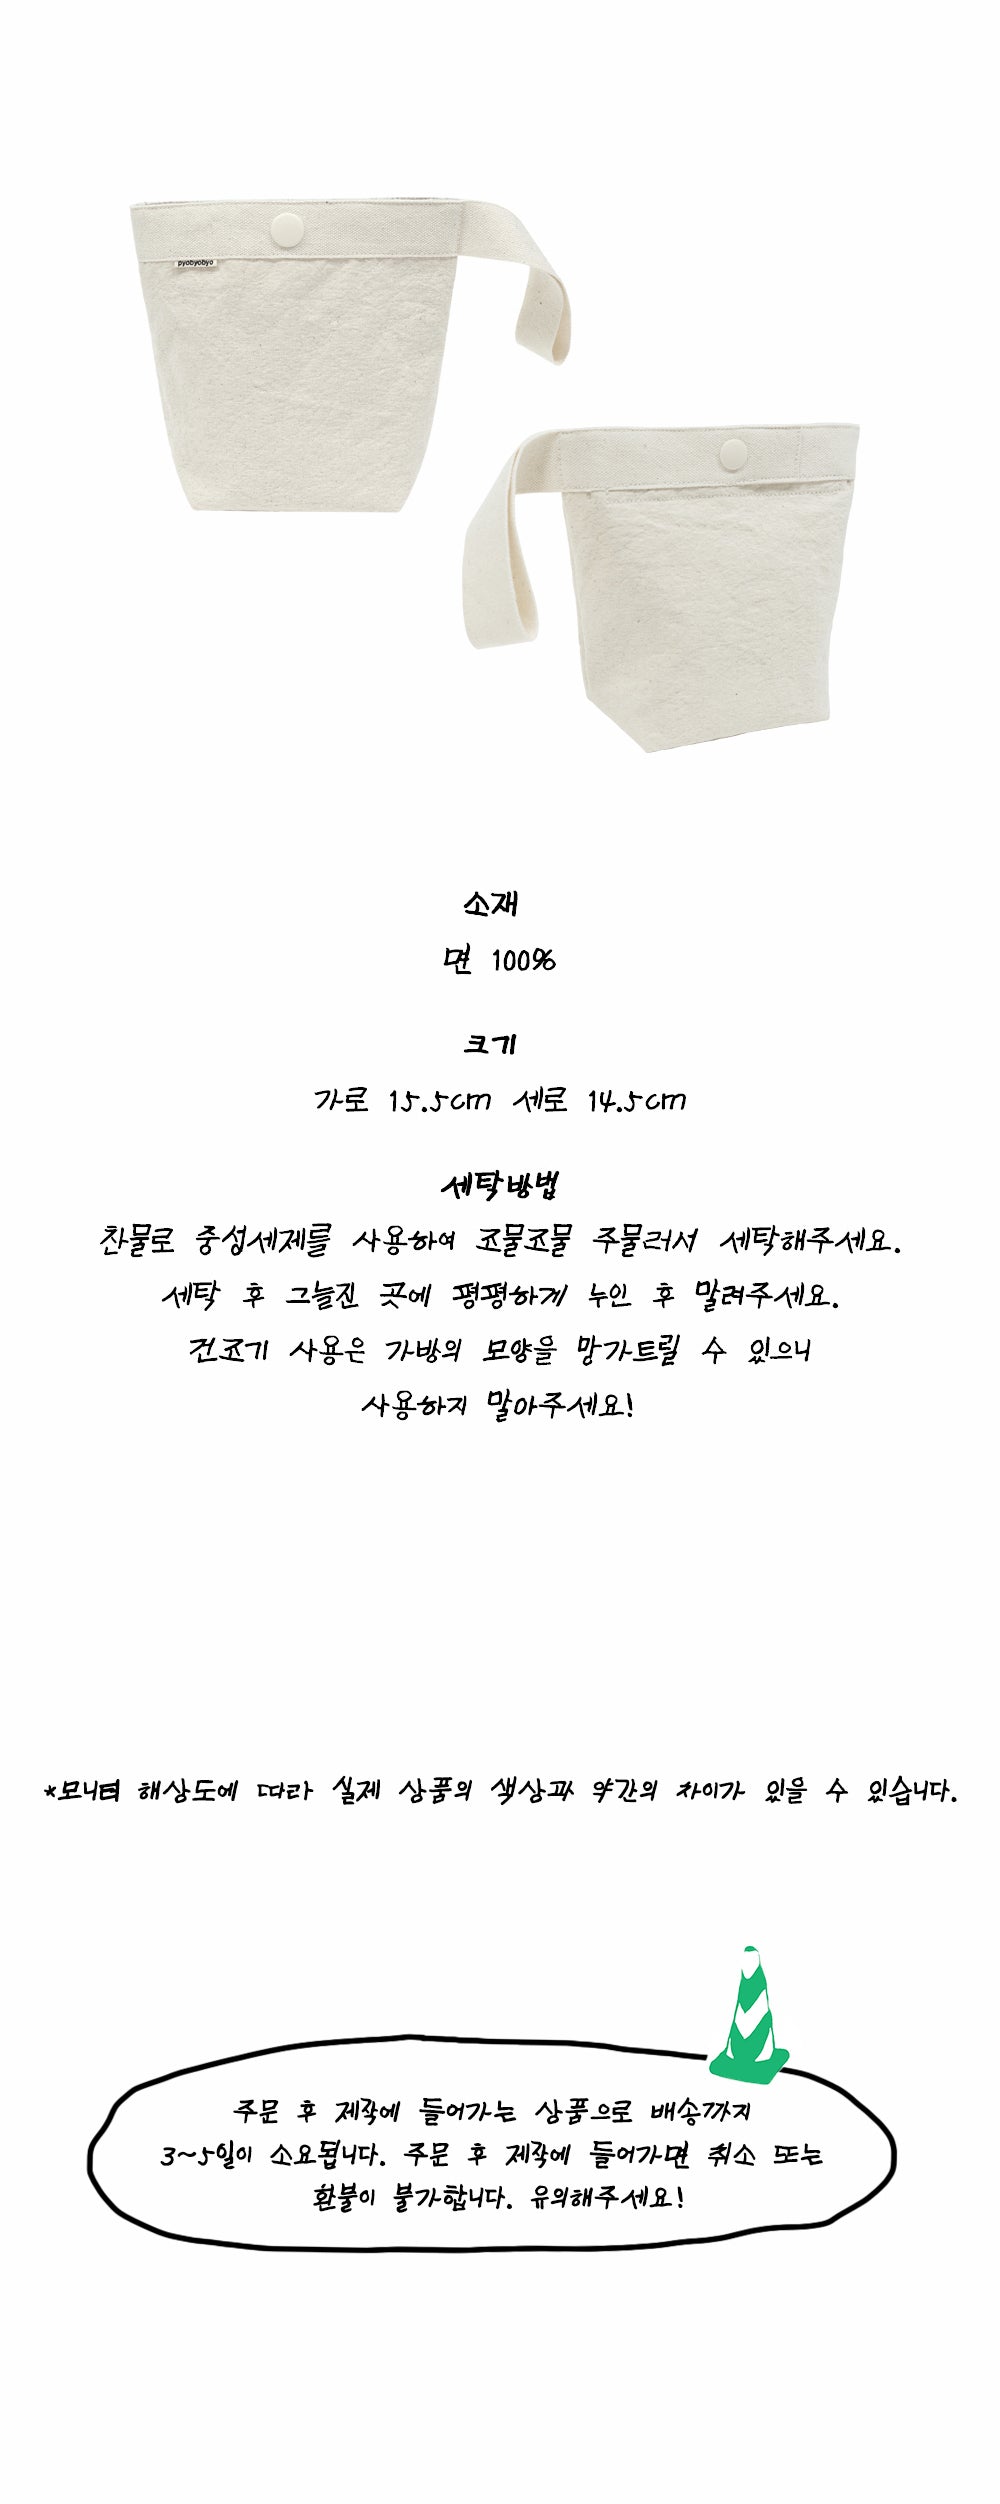 pyobyobyo
소재
면 100%
크기
가로 15.5cm 세로 14.5cm
세탁방법
찬물로 중성세제를 사용하여 조물조물 주물러서 세탁해주세요.
세탁 후 그늘진 곳에 평평하게 누인 후 말려주세요.
건조기 사용은 가방의 모양을 망가트릴 수 있으니
사용하지 말아주세요!
*모니터 해상도에 따라 실제 상품의 색상과 약간의 차이가 있을 수 있습니다.
주문 후 제작에 들어가는 상품으로 배송까지
3~5일이 소요됩니다. 주문 후 제작에 들어가면 취소 또는
환불이 불가합니다. 유의해주세요!